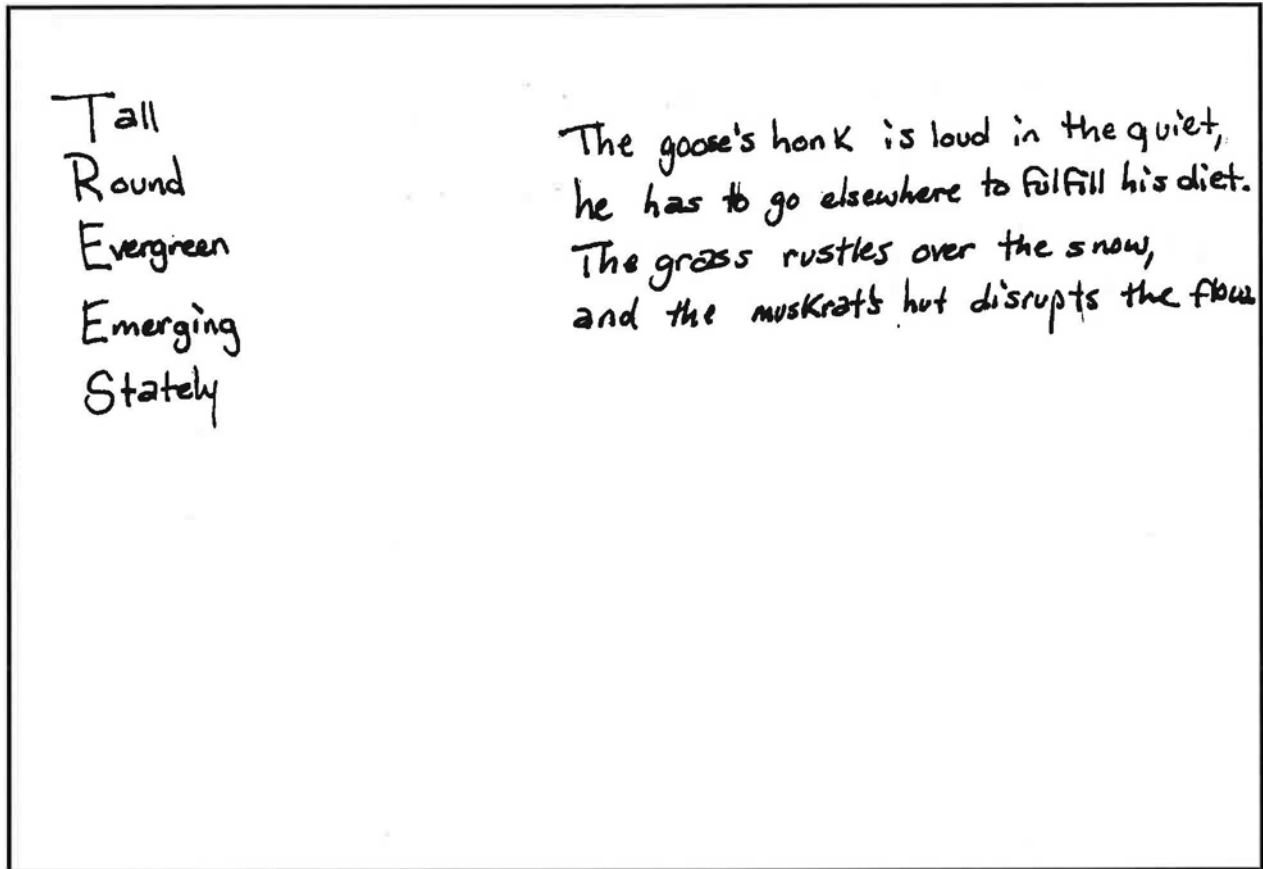 Tall
Round
Evergreen
Emerging
Stately
The goose's honk is loud in the quiet,
he has to go elsewhere to fulfill his diet.
The grass rustles over the snow,
and the muskrat's hut disrupts the flow